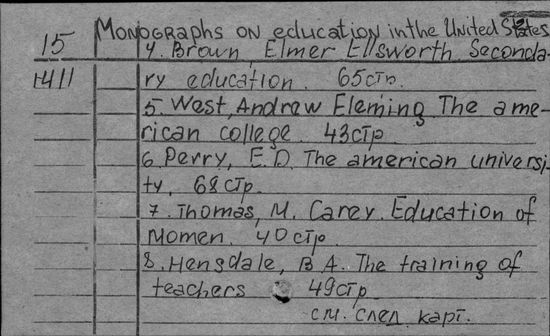 Monographs on education in the United States
15
4. Brown, Elmer Ellsworth. Seconda-
1411
ry education. 65 стр.
5. West, Andrew Fleming. The ame-
rican college. 43 стр.
6. Perry, E.D. The american universi-
ty. 68 стр.
7. Thomas, M. Carey. Education of
Women. 40 стр.
8. Hensdale, B A. The training of
teachers 49 стр
см. след. карт.